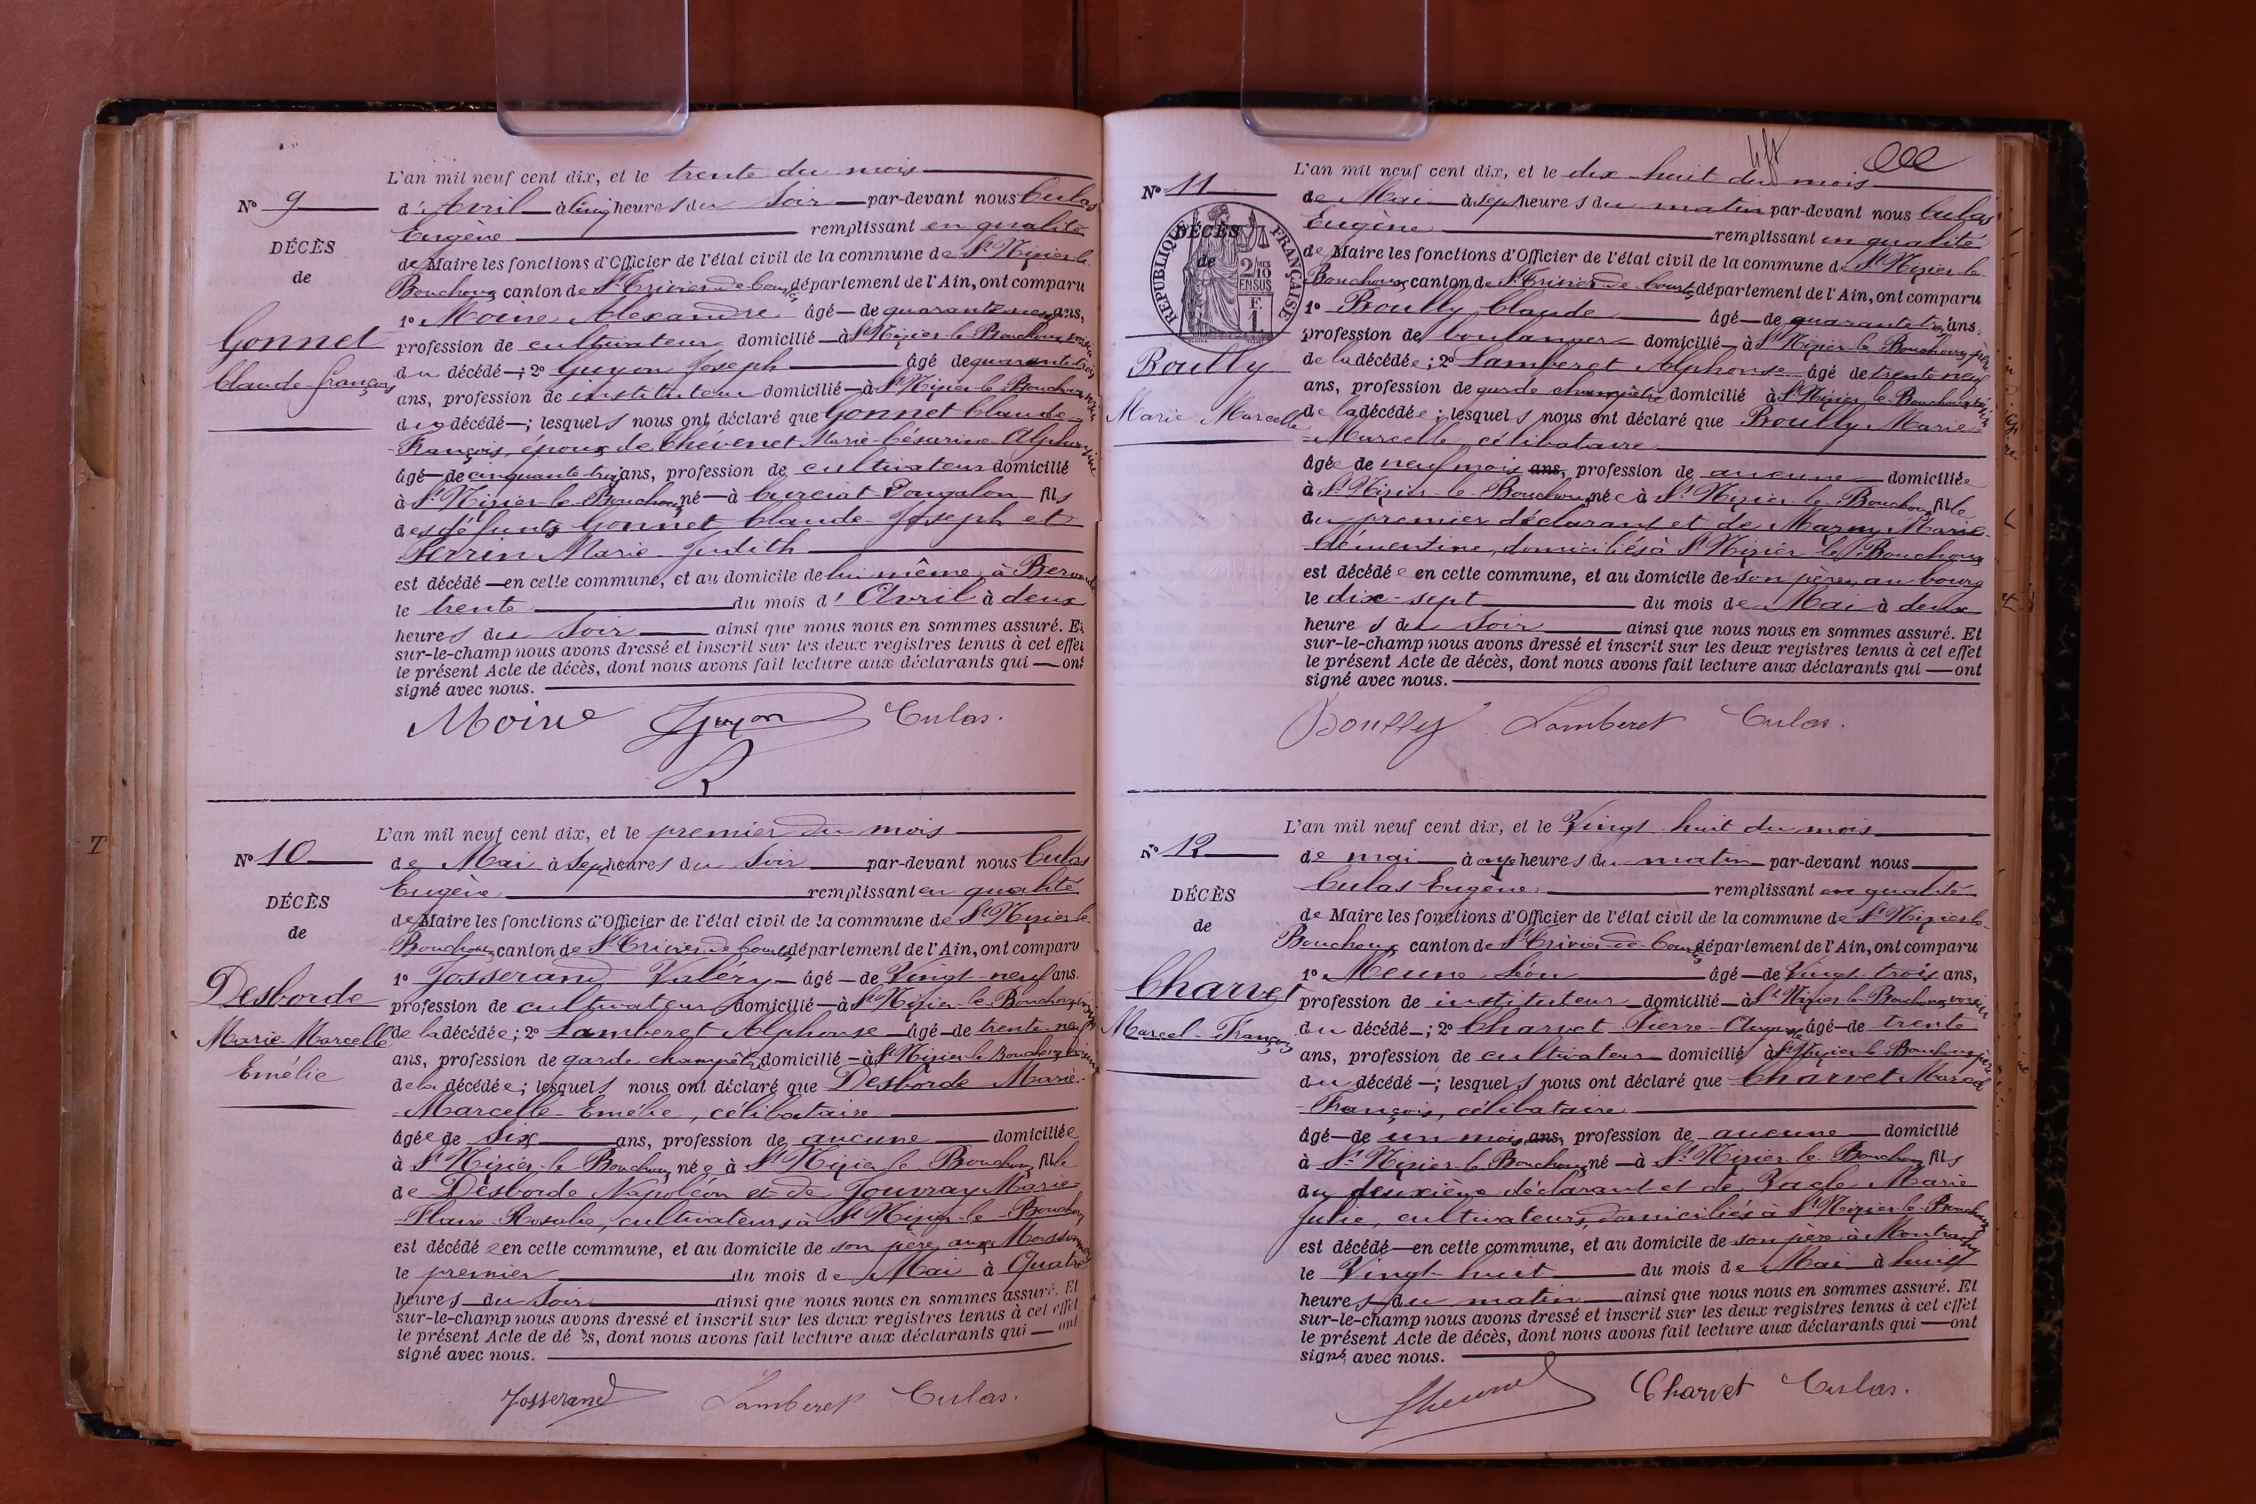 L'an mil neuf cent dix, et le trente du mois
N° 9
d'Avril à cinq heures du soir par-devant nous Culas
Eugène remplissant en qualité
DÉCÈS
de Maire les fonctions d'Officier de l'état civil de la commune de St Nizier-le
de
Bouchoux canton de St Trivier-de-Courtes département de l'Ain, ont comparu
1° Moine Alexandre âgé de quarante neuf ans,
Gonnet
profession de cultivateur domicilié à St Nizier-le-Bouchoux voisin
Claude-François
du décédé; 2° Guyon Joseph âgé de quarante trois
ans, profession de instituteur domicilié à St Nizier-le-Bouchoux voisin
du décédé; lesquels nous ont déclaré que Gonnet Claude-
François, époux de Chévenet Marie-Césarine Alphonsine
âgé de cinquante-trois ans, profession de cultivateur domicilié
à St Nizier-le-Bouchoux né à Curciat-Dongalon fils
des défunts Gonnet Claude-Joseph et
Perrin Marie-Judith
est décédé en cette commune, et au domicile de lui même, à
le trente du mois d'Avril à deux
heures du soir ainsi que nous nous en sommes assuré. Et
sur-le-champ nous avons dressé et inscrit sur les deux registres tenus à cet effet
le présent Acte de décès, dont nous avons fait lecture aux déclarants qui ont
signé avec nous.
Moine Guyon Culas.
L'an mil neuf cent dix, et le premier du mois
N° 10
de Mai à sept heures du soir par-devant nous Culas
Eugène remplissant en qualité
DÉCÈS
de Maire les fonctions d'Officier de l'état civil de la commune de St Nizier-le-
de
Bouchoux canton de St Trivier-de-Courtes département de l'Ain, ont comparu
1° Josserand Valery âgé de Vingt-neuf ans,
Desborde
profession de cultivateur domicilié à St Nizier-le-Bouchoux voisin
Marie Marcelle
de la décédée; 2° Lamberet Alphonse âgé de trente neuf
Emélie
ans, profession de garde champêtre domicilié à St Nizier-le-Bouchoux voisin
de la décédée; lesquels nous ont déclaré que Desborde Marie-
Marcelle-Emélie, célibataire
âgée de six ans, profession de aucune domiciliée
à St Nizier-le-Bouchoux née à St Nizier-le-Bouchoux fille
de Desborde Napoléon et de Jouvray Marie
Rosalie, cultivateurs à St Nizier-le-Bouchoux
est décédée en cette commune, et au domicile de son père, aux
le premier du mois de Mai à Quatre
heures du soir ainsi que nous nous en sommes assuré. Et
sur-le-champ nous avons dressé et inscrit sur les deux registres tenus à cet effet
le présent Acte de décès, dont nous avons fait lecture aux déclarants qui ont
signé avec nous.
Josserand Lamberet Culas.
L'an mil neuf cent dix, et le dix-huit du mois
N° 11
de Mai à sept heures du matin par-devant nous Culas
RÉPUBLIQUE FRANÇAISE
2/10 EN SUS
1 F
DÉCÈS
Eugène remplissant en qualité
de
de Maire les fonctions d'Officier de l'état civil de la commune de St Nizier-le-
Bouchoux canton de St Trivier-de-Courtes département de l'Ain, ont comparu
1° Boully Claude âgé de quarante trois ans,
profession de boulanger domicilié à St Nizier-le-Bouchoux père
Boully
de la décédée; 2° Lamberet Alphonse âgé de trente neuf
Marie-Marcelle
ans, profession de garde champêtre domicilié à St Nizier-le-Bouchoux voisin
de la décédée; lesquels nous ont déclaré que Boully Marie
Marcelle, célibataire
âgée de neuf mois ans, profession de aucune domiciliée
à St Nizier-le-Bouchoux née à St Nizier-le-Bouchoux fille
du premier déclarant et de Marie-
Clémentine, domiciliés à St Nizier-le-Bouchoux
est décédée en cette commune, et au domicile de son père, au bourg
le dix-sept du mois de Mai à deux
heures du soir ainsi que nous nous en sommes assuré. Et
sur-le-champ nous avons dressé et inscrit sur les deux registres tenus à cet effet
le présent Acte de décès, dont nous avons fait lecture aux déclarants qui ont
signé avec nous.
Boully Lamberet Culas.
L'an mil neuf cent dix, et le Vingt-huit du mois
N° 12
de mai à onze heures du matin par-devant nous
Culas Eugène remplissant en qualité
DÉCÈS
de Maire les fonctions d'Officier de l'état civil de la commune de St Nizier-le-
de
Bouchoux canton de St Trivier-de-Courtes département de l'Ain, ont comparu
1° Meune Léon âgé de Vingt-trois ans,
Charvet
profession de instituteur domicilié à St Nizier-le-Bouchoux voisin
Marcel-François
du décédé; 2° Charvet Pierre-Auguste âgé de trente
ans, profession de cultivateur domicilié à St Nizier-le-Bouchoux père
du décédé; lesquels nous ont déclaré que Charvet Marcel
François, célibataire
âgé de un mois ans, profession de aucune domicilié
à St Nizier-le-Bouchoux né à St Nizier-le-Bouchoux fils
du deuxième déclarant et de Vacle Marie
Julie, cultivateurs, domiciliés à St Nizier-le-Bouchoux
est décédé en cette commune, et au domicile de son père à
le Vingt-huit du mois de Mai à huit
heures du matin ainsi que nous nous en sommes assuré. Et
sur-le-champ nous avons dressé et inscrit sur les deux registres tenus à cet effet
le présent Acte de décès, dont nous avons fait lecture aux déclarants qui ont
signé avec nous.
Charvet Culas.